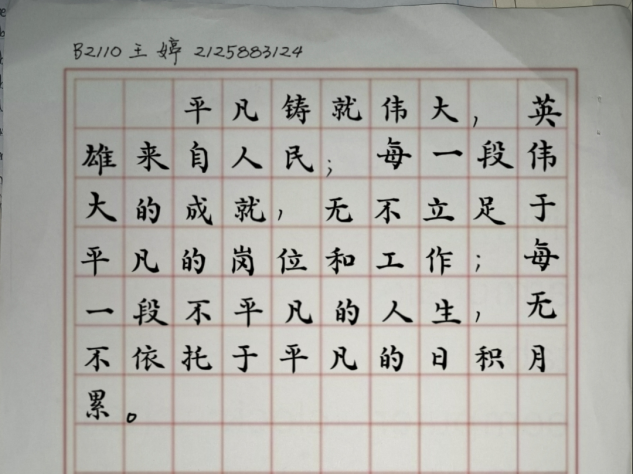 B2110 王婷 2125883124
平凡铸就伟大，英
雄来自人民；每一段伟
大的成就，无不立足于
平凡的岗位和工作；每
一段不平凡的人生，无
不依托于平凡的日积月
累。